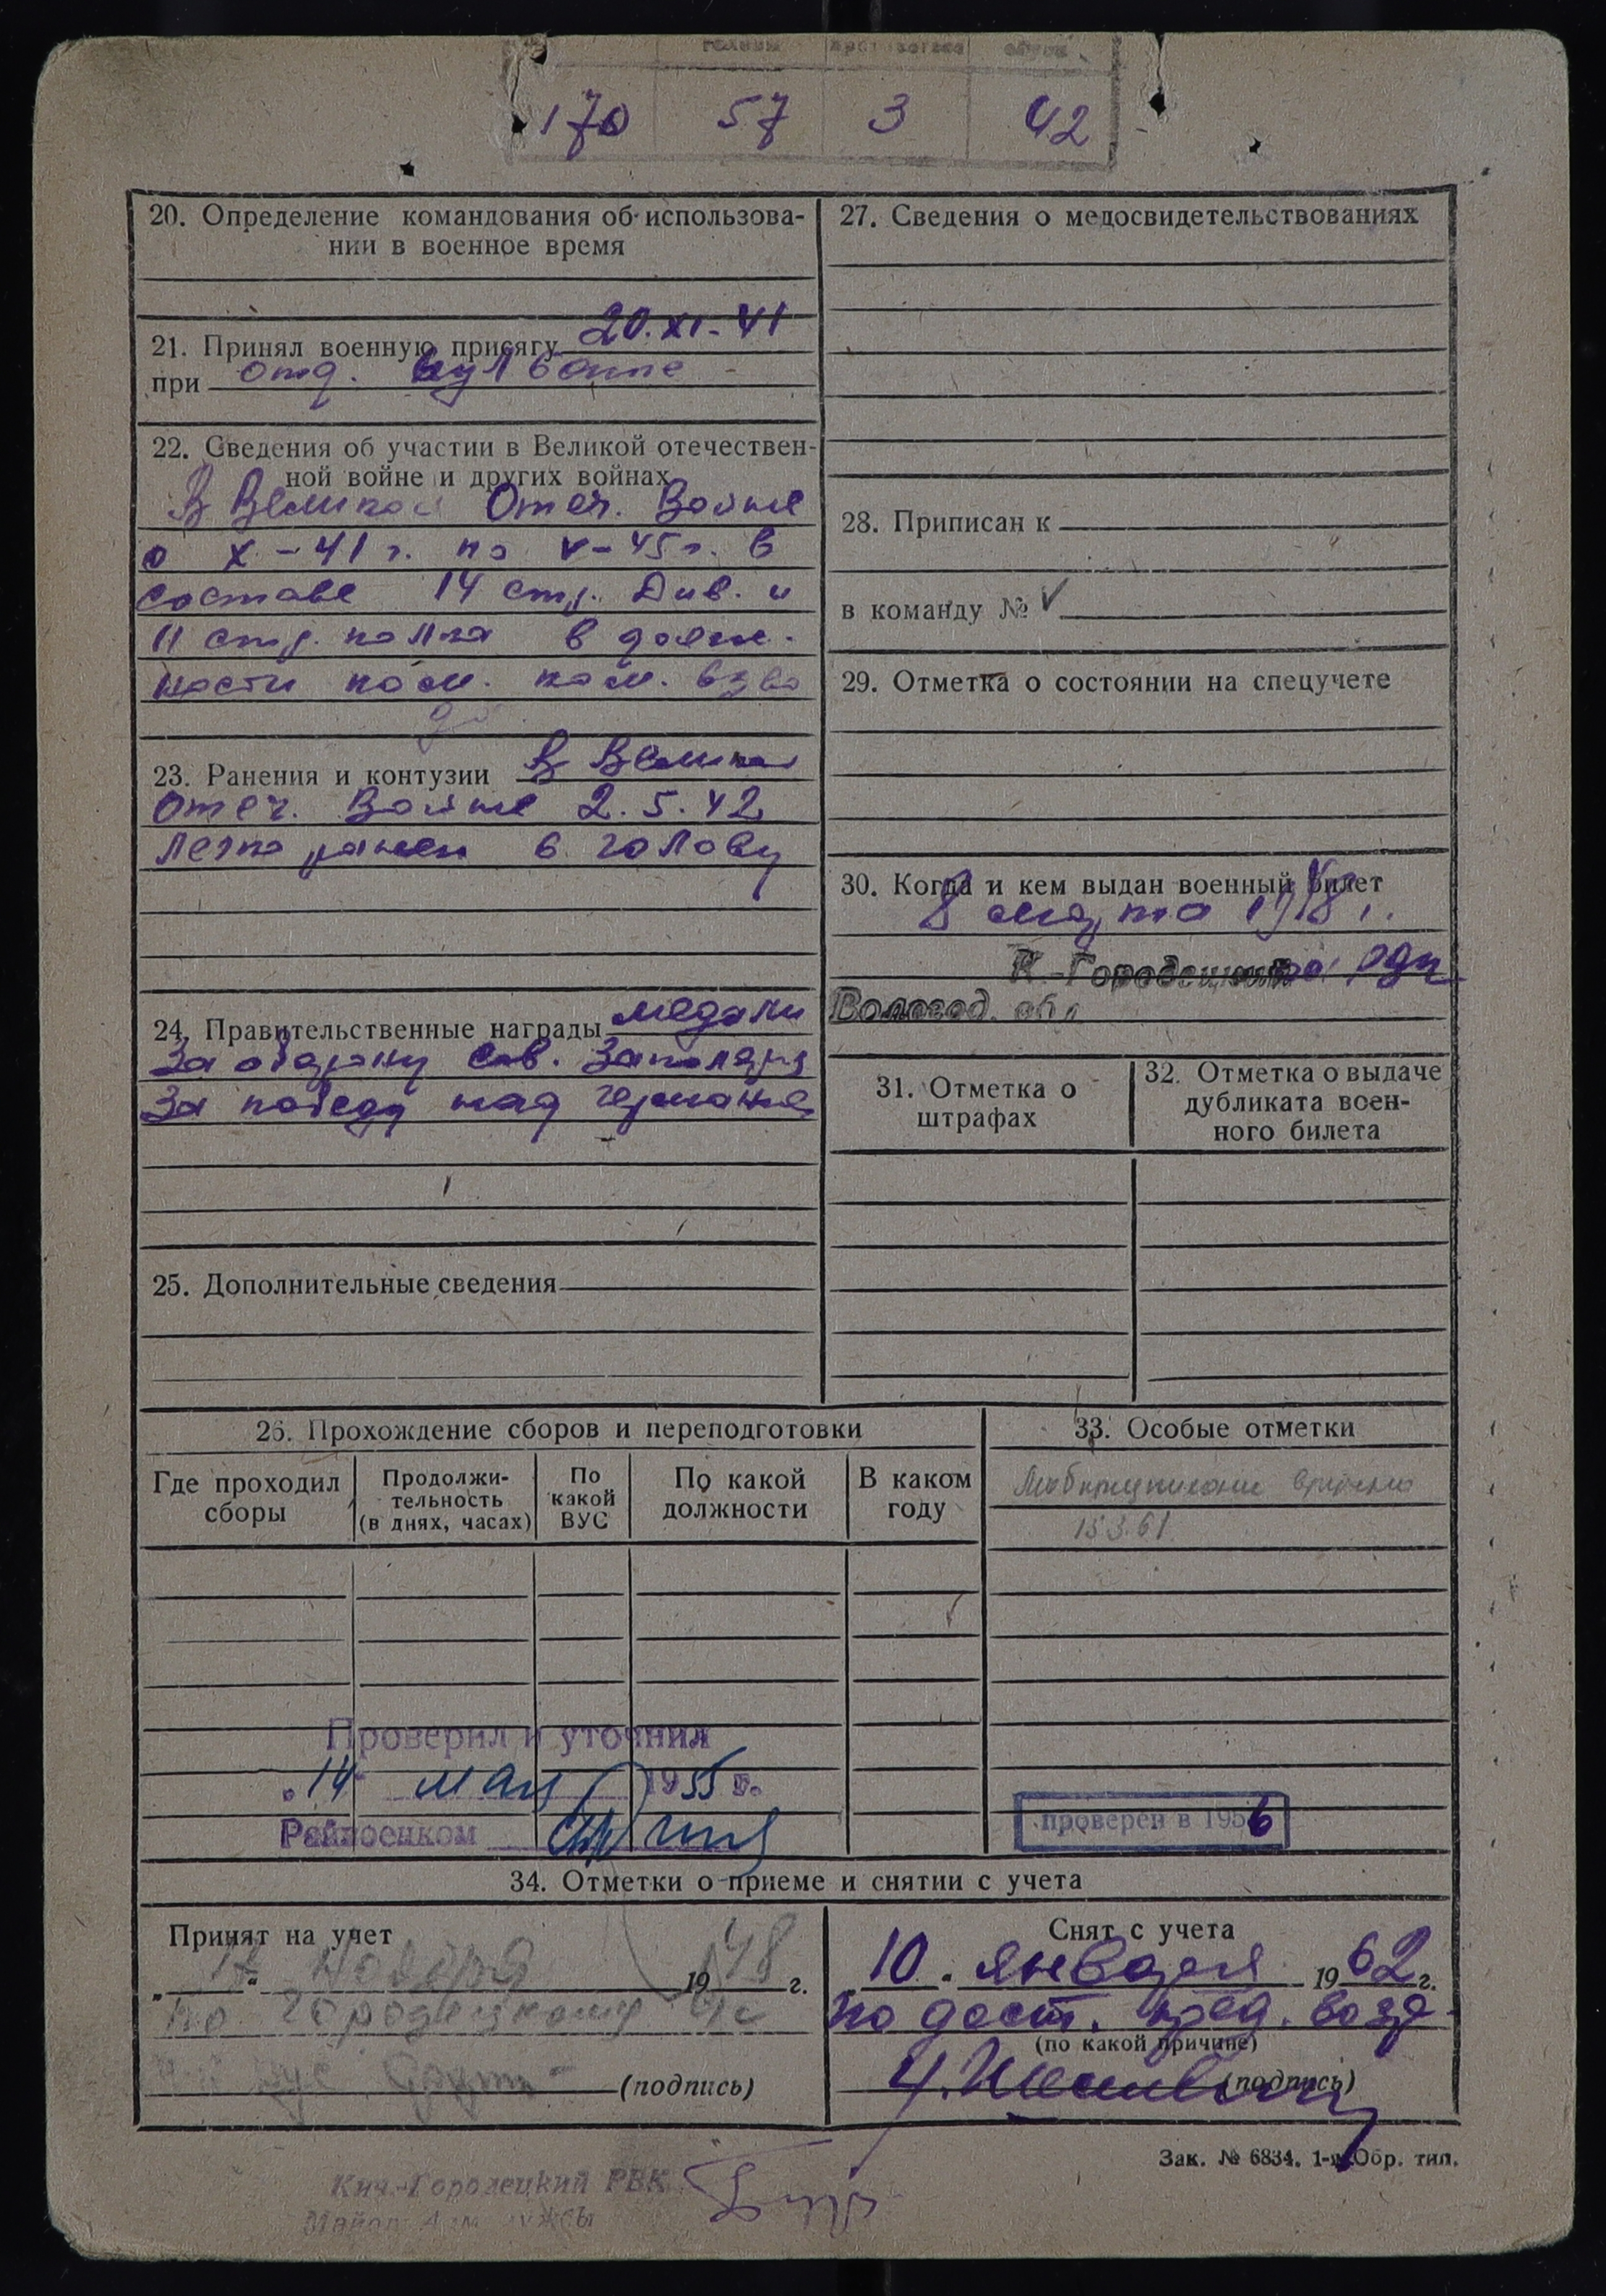 170 57 3 42
20. Определение командования об использова-
нии в военное время
21. Принял военную присягу 20.XI-41
при отд. пул бат-не
22. Сведения об участии в Великой отечествен-
ной войне и других войнах
В Великой Отеч. Войне
с X-41 г. по V-45 г. в
составе 14 стр. Див. и
11 стр. полка в долж-
ности пом. ком. взво
да
23. Ранения и контузии В Великой
Отеч. Войне 2.5.42
легко ранен в голову
24. Правительственные награды медали
За оборону Сов. Заполярья
За победу над германией
25. Дополнительные сведения
27. Сведения о медосвидетельствованиях
28. Приписан к
в команду №
29. Отметка о состоянии на спецучете
30. Когда и кем выдан военный билет
8 марта 1948 г.
К-Городецким
Вологод. обл
31. Отметка о
штрафах
32. Отметка о выдаче
дубликата воен-
ного билета
26. Прохождение сборов и переподготовки
Где проходил
сборы
Продолжи-
тельность
(в днях, часах)
По
какой
ВУС
По какой
должности
В каком
году
33. Особые отметки
Мобпредписание вручено
15.3.61
Проверил и уточнил
„14“ мая 1955 г.
Райвоенком
проверен в 1956
34. Отметки о приеме и снятии с учета
Принят на учет
„17“ ноября 1948 г.
по Городецкому
(подпись)
Снят с учета
„10“ января 1962 г.
по дост. пред. возр.
(по какой причине)
(подпись)
Зак. № 6834. 1-я Обр. тип.
Кич.-Городецкий РВК
Майор Адм. службы